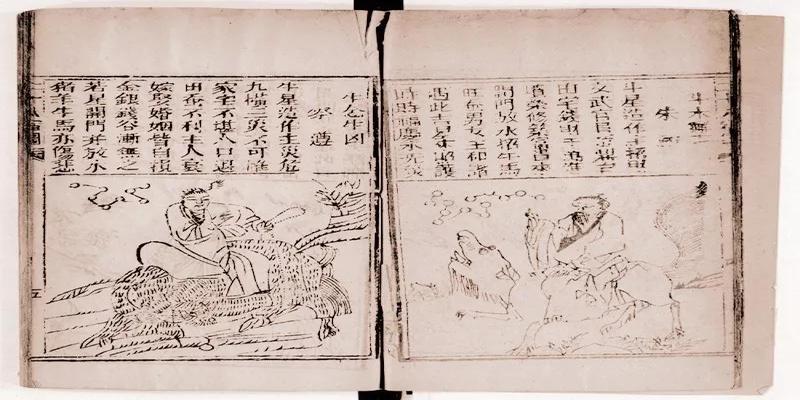 斗木獬吉
朱祐
斗星造作主招財
文武官員位鼎台
田宅錢財千萬進
墳塋修築富貴來
開門放水招牛馬
旺蚕男女主和諧
遇此吉星來照護
時時福慶永無災
牛金牛凶
祭遵
牛星造作主災危
九橫三災不可推
家宅不人口退
田蚕不利主人衰
嫁娶婚姻皆自損
金銀錢谷漸無之
若是開門并放水
猪羊牛馬亦傷悲
五